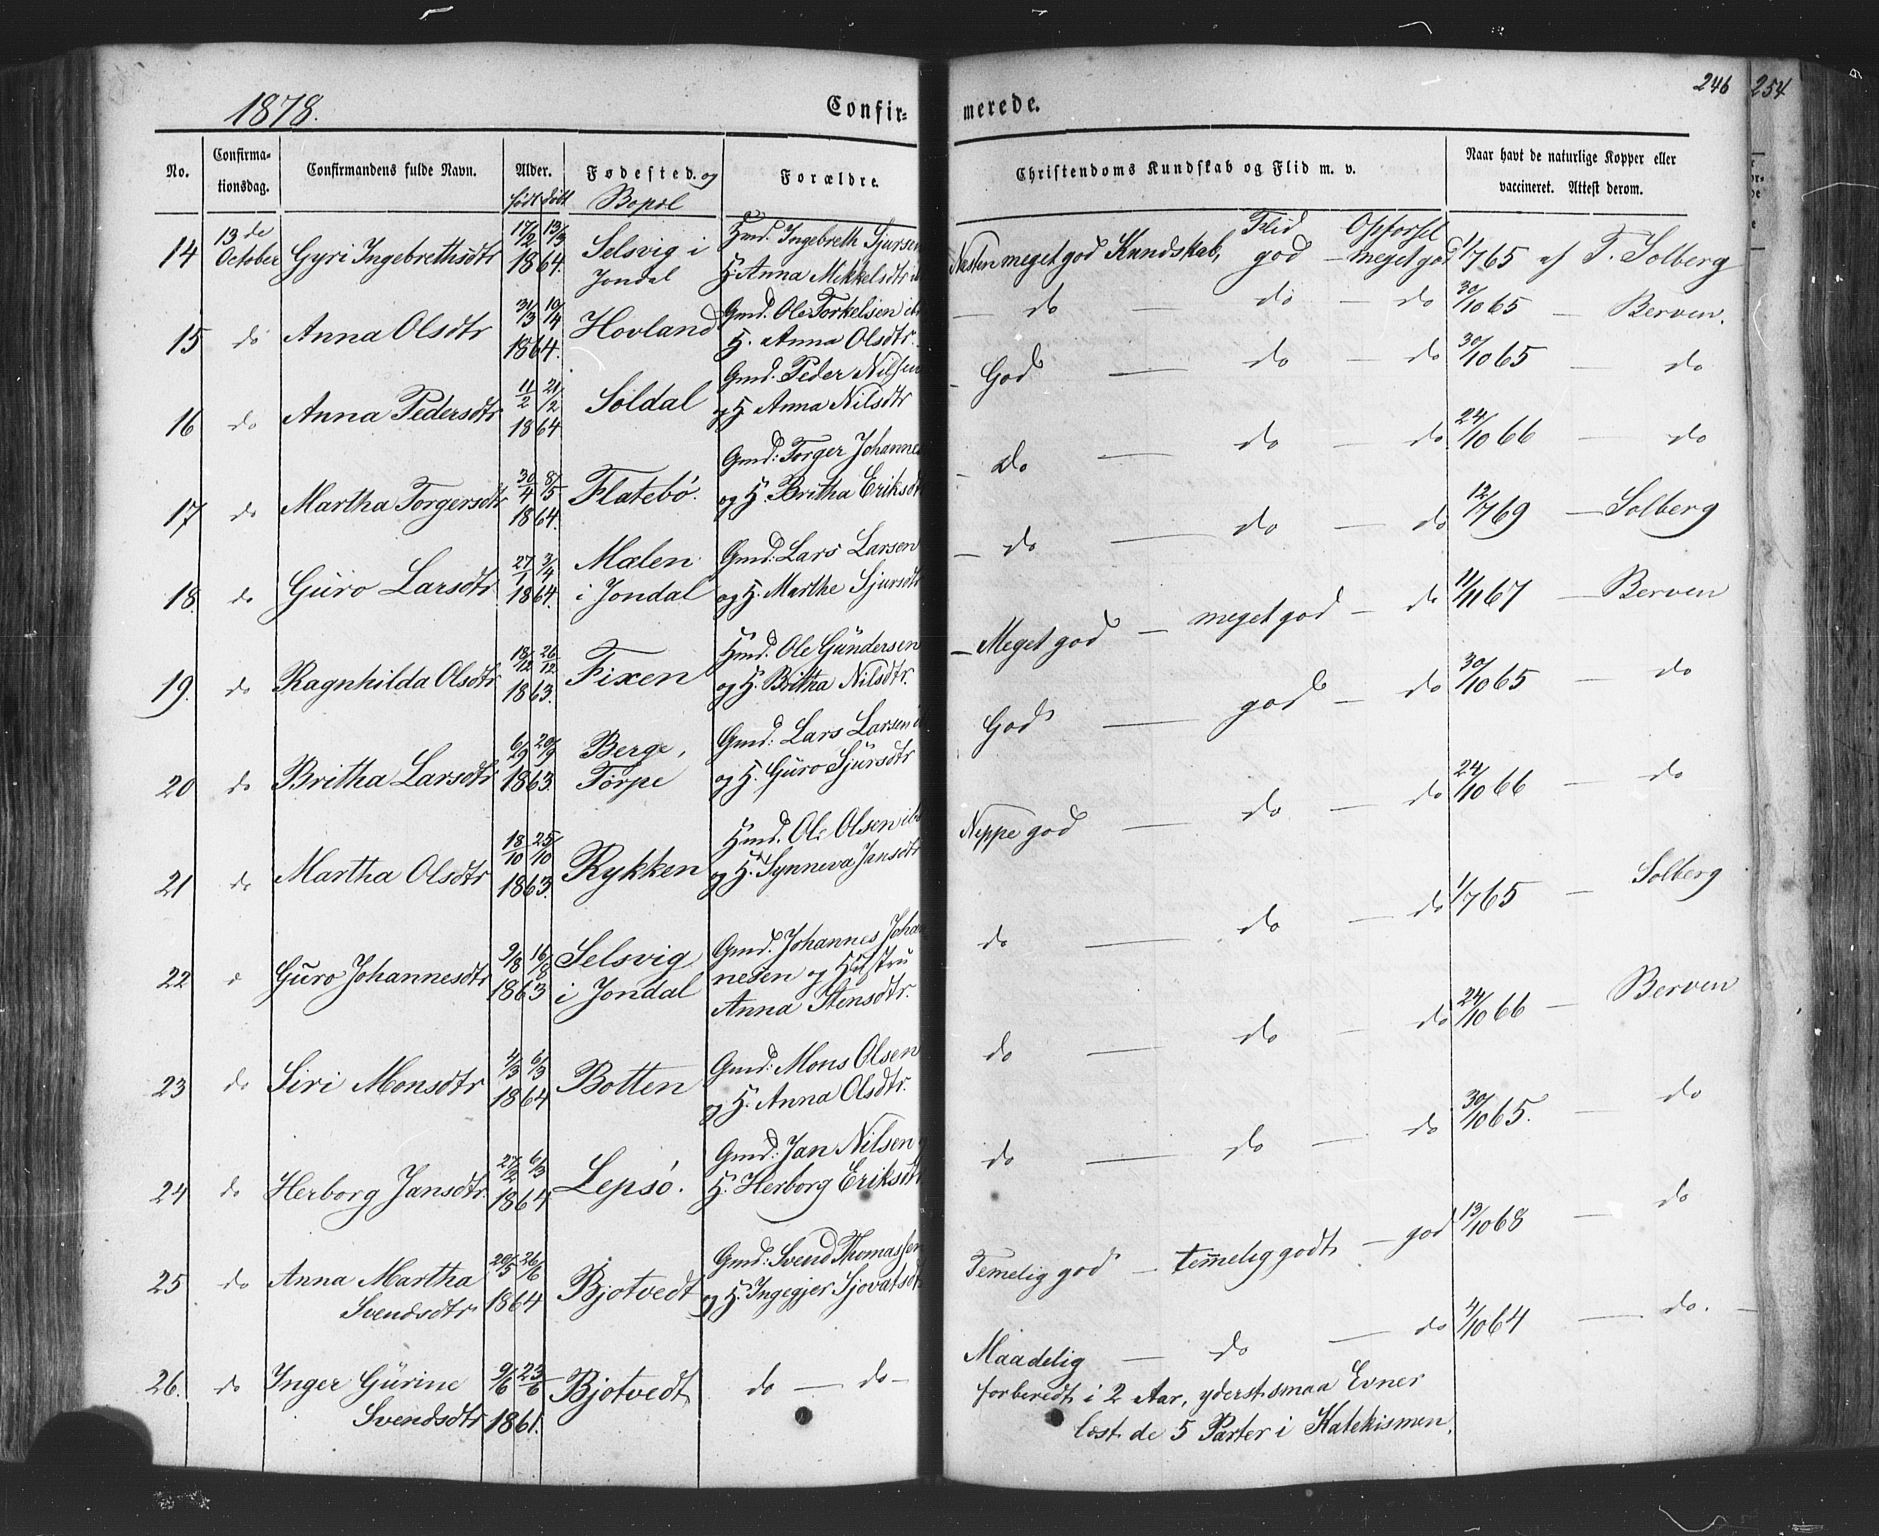 1878.
Confir-
merede.
246
254
No.
Confirma-
tionsdag.
Confirmandens fulde Navn.
Alder.
født døbt
Fødested. og
Bopæl
Forældre.
Christendoms Kundskab og Flid m. v.
Naar havt de naturlige Kopper eller
vaccineret. Attest derom.
Flid Opførsel
14 13de October Gyri Ingebrethsdtr 17/2 13/3 1864. Selsvig i Jondal Hmd. Ingebreth Sjursen H. Anna Mikkelsdtr Næsten meget god Kundskab, god — meget god 1/7 65 af T. Solberg
15 do Anna Olsdtr 31/3 10/4 1864. Hovland Gmd. Ole Torkelsen ibd H. Anna Olsdtr. — do — do — do 30/10 65 — Berven.
16 do Anna Pedersdtr 11/2 21/2 1864 Soldal Gmd. Peder Nilsen og H. Anna Nilsdtr — God — do — do 30/10 65 — do
17 do Martha Torgersdtr 30/4 8/5 1864. Flatebö. Gmd: Torger Johannes og H. Britha Eriksdt — do — do — do 24/10 66 — do
18. do Guro Larsdtr 27/1 3/4 1864. Mælen i Jondal Gmd: Lars Larsen og H. Marthe Sjursdtr — do — do — do 12/7 69 — Solberg
19. do Ragnhilda Olsdtr 18/12 26/12 1863. Fixen Hmd. Ole Gundersen og H. Britha Nilsdtr. — Meget god — meget god — do 11/11 67 — Berven
20 do Britha Larsdtr 6/9 20/9 1863. Berge, Torpe Gmd: Lars Larsen og H. Guro Sjursdtr God — god — do 30/10 65 — do
21 do Martha Olsdtr 18/10 25/10 1863. Rykken Hmd. Ole Olsen ibd og H. Synneva Jansdtr Neppe god — do — do 24/10 66 — do
22 Guro Johannesdtr 9/8 16/8 1863 Selsvig i Jondal Gmd. Johannes Johan nesen og Hustru Anna Stensdtr. do — do — do 1/7 65 — Solberg
23 do Siri Monsdtr 4/3 6/3 1864 Botten Gmd: Mons Olsen og H. Anna Olsdtr. do — do — do 24/10 66 — Berven
24 do Herborg Jansdtr. 27/2 6/3 1864 Lepsö. Gmd: Jan Nilsen H. Herborg Eriksdt do — do — do 30/10 65. — do
25 do Anna Martha Svendsdtr 20/5 26/6 1864 Bjotvedt Gmd: Svend Thomassen og H. Ingegjer Sjovatsdt Temelig god — temelig godt — god 13/10 68 — do
26. do Inger Gurine Svendsdtr 9/6 23/6 1861. Bjotvedt do — do — Maadelig — do — do 2/10 64 — do. —
forberedt i 2 Aar, yderst smaa Evner
læst de 5 Parter i Katekismen.